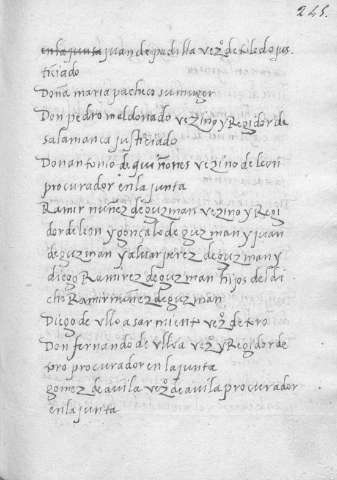 245.
en la junta juan de padilla vezº de toledo jus
ticiado
Doña maria pacheco su muger
Don pedro maldonado vezino y Regidor de
salamanca justiciado
Don antonio de quiñones vezino de leon
procurador en la junta
Ramir nuñez de guzman vezino y Regi
dor de leon y gonçalo de guzman y juan
de guzman y alvar perez de guzman y
diego Ramirez de guzman hijos del di
cho Ramir nuñez de guzman
Diego de ulloa sarmiento vezº de toro
Don fernando de ulloa vezº y Regidor de
toro procurador en la junta
gomez de avila vezº de avila procurador
en la junta